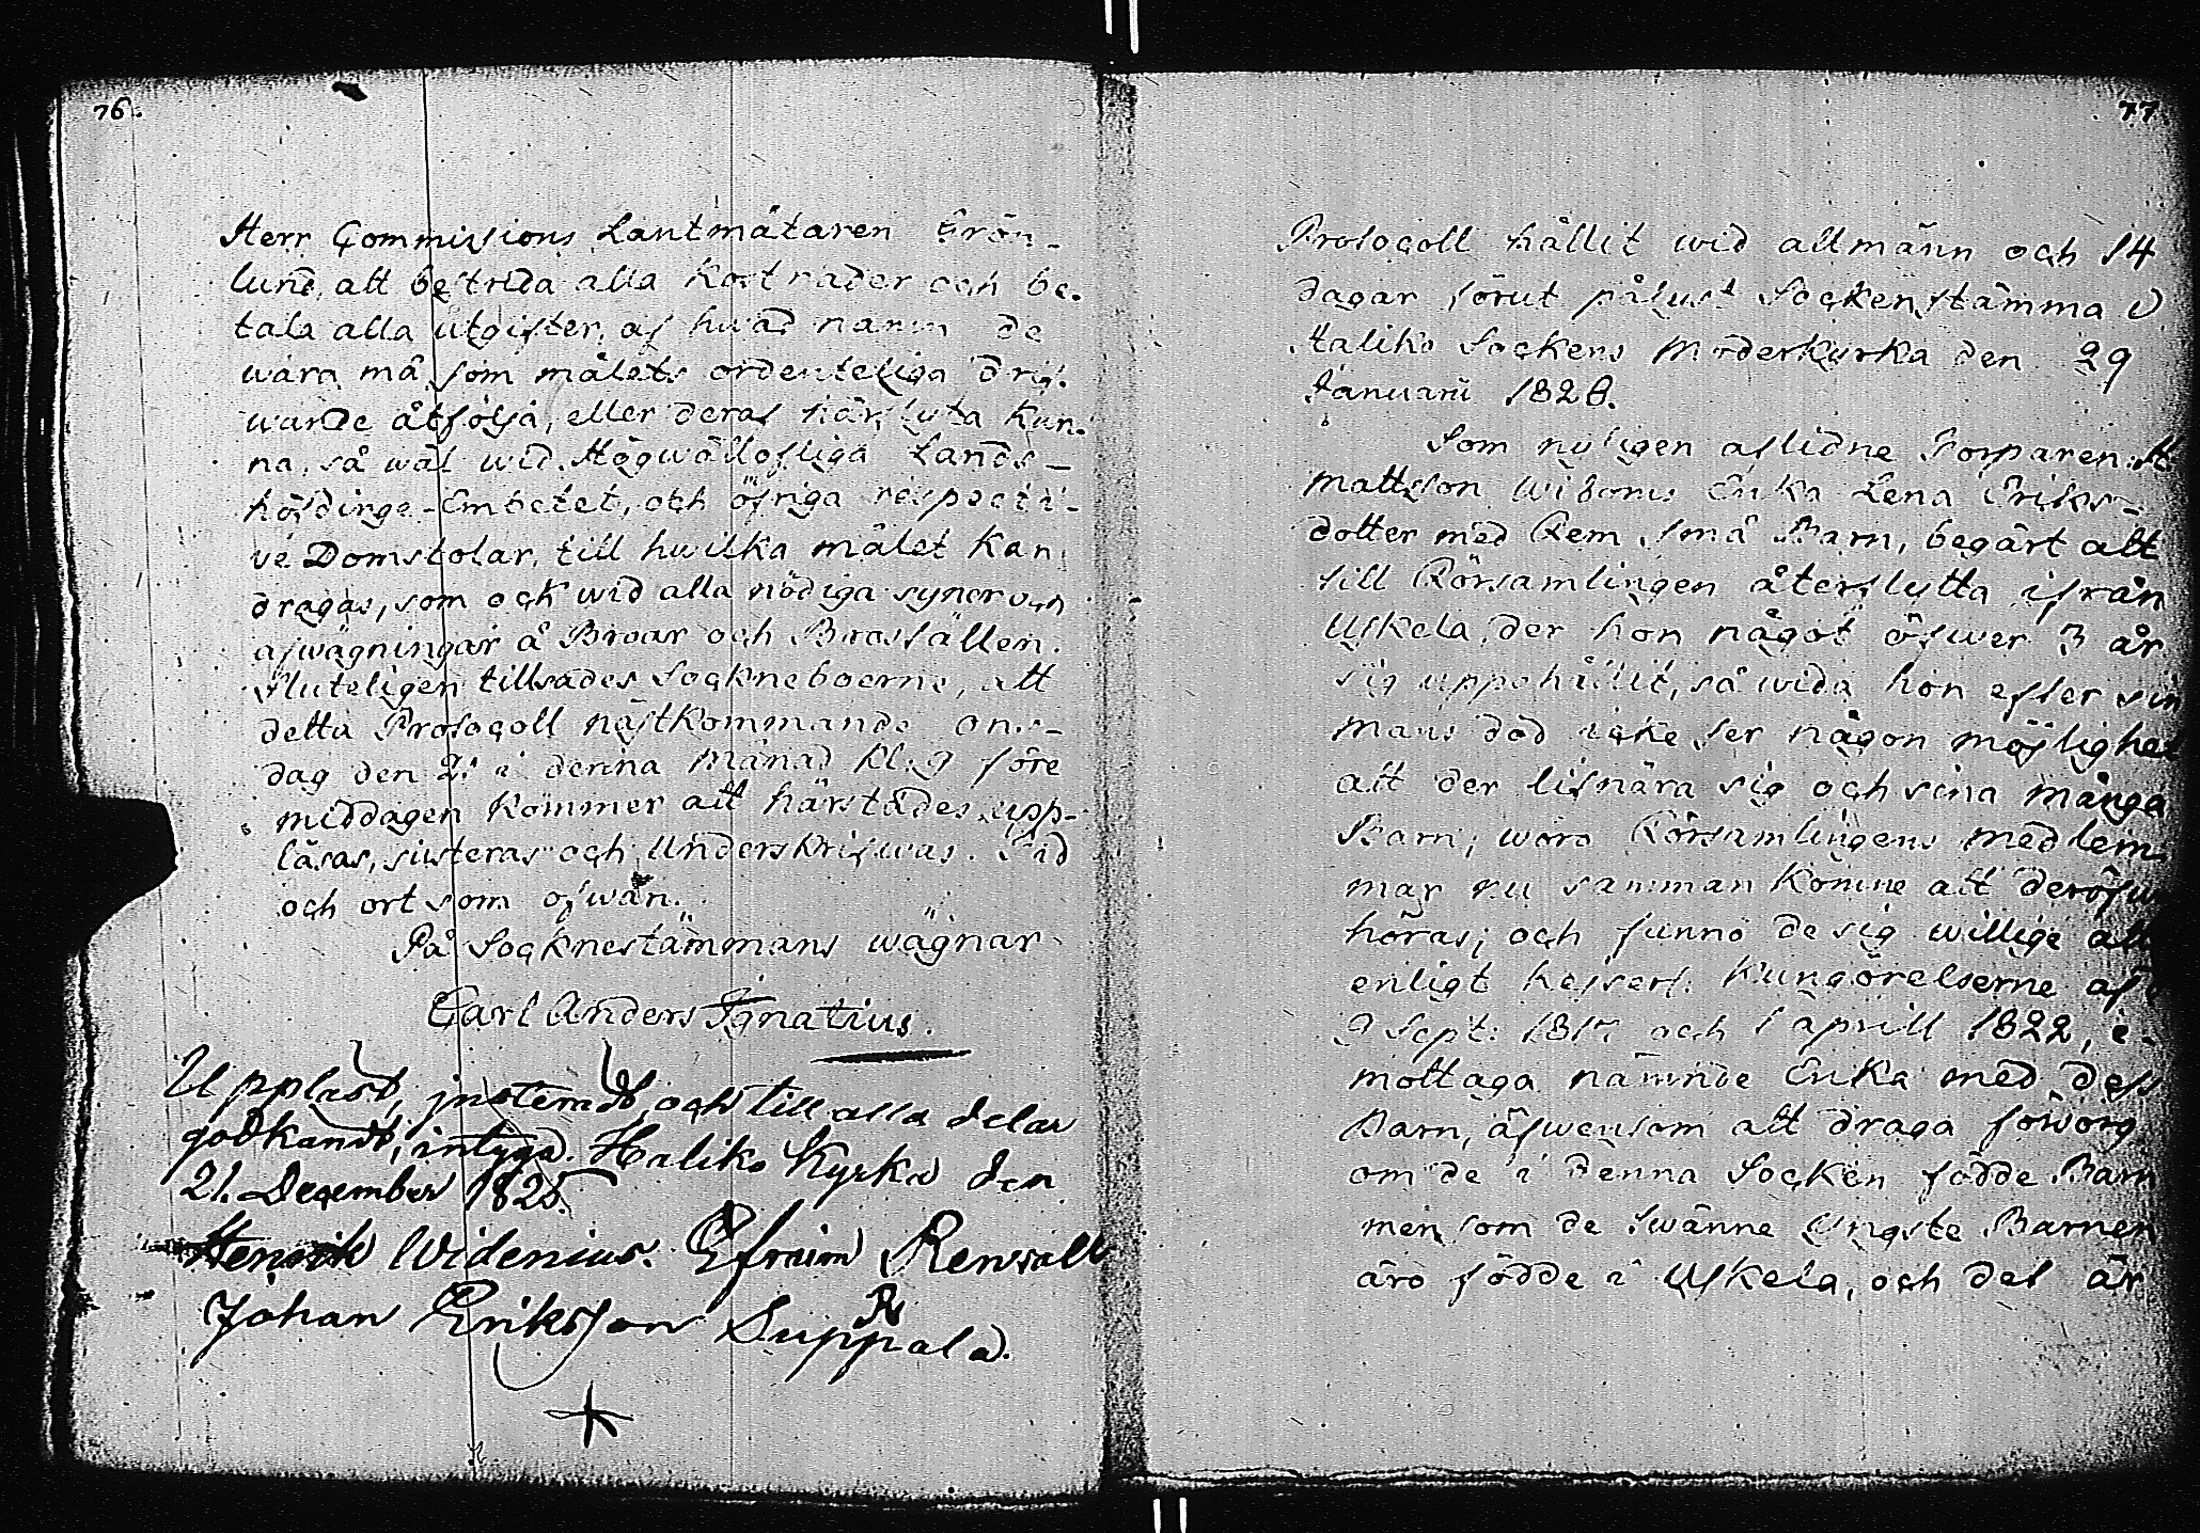 76.
Herr Commissions Lantmätaren Grön-
lund, att bestrida alla Kostnader och be-
tala alla utgifter, af hwad namn de
wara må, som målets ordenteliga drif-
wande åtfölja, eller deraf härflyta Kun-
na, så wäl wid Högwällofliga Lands-
höfdinge-Embetet, och öfriga respecti-
ve Domstolar, till hwilka målet Kan
dragas, som ock wid alla nödiga syner och
afwägningar å Broar och Broställen.
Sluteligen tillsades Sockneboerne, att
detta Protocoll nästKommande ons-
dag den 21 i denna Månad Kl. 9 före
middagen Kommer att härstädes upp-
läsas, justeras och UnderskKrifwas. Tid
och ort som ofwan.
På Socknestämmans wägnar
Carl Anders Ignatius.
Uppläst, justeradt, och till alla delar
godkandt, intyga. Haliko Kyrka den
21. December 1825.
Henrik Widenius. Efraim Renvall
Johan Eriksson Suppala.
77.
Protocoll hållit wid allmänn och 14
dagar förut pålyst Sockenstämma i
Haliko Sockens ModerKyrka den 29
Januarii 1826.
Som nyligen aflidne Torparen
Mattsson Wiboms Enka Lena Eriks-
dotter med Fem små Barn, begärt att
till Församlingen återflytta ifrån
Uskela, der hon något öfwer 3 år
sig uppehållit, så wida hon efter sin
mans död icke ser någon möjlighet
att der lifnära sig och sina många
Barn; woro Församlingens medlem-
mar nu samman Komne att deröfw
höras; och funno de sig willige att
enligt Kejserl. Kungörelserne af
9 Sept: 1817 och 1 aprill 1822, e-
mottaga nämnde Enka med dess
Barn, äfwensom att draga försorg
om de i denna Socken födde Barn
men som de twänne yngste Barnen
äro födde i Uskela, och det är